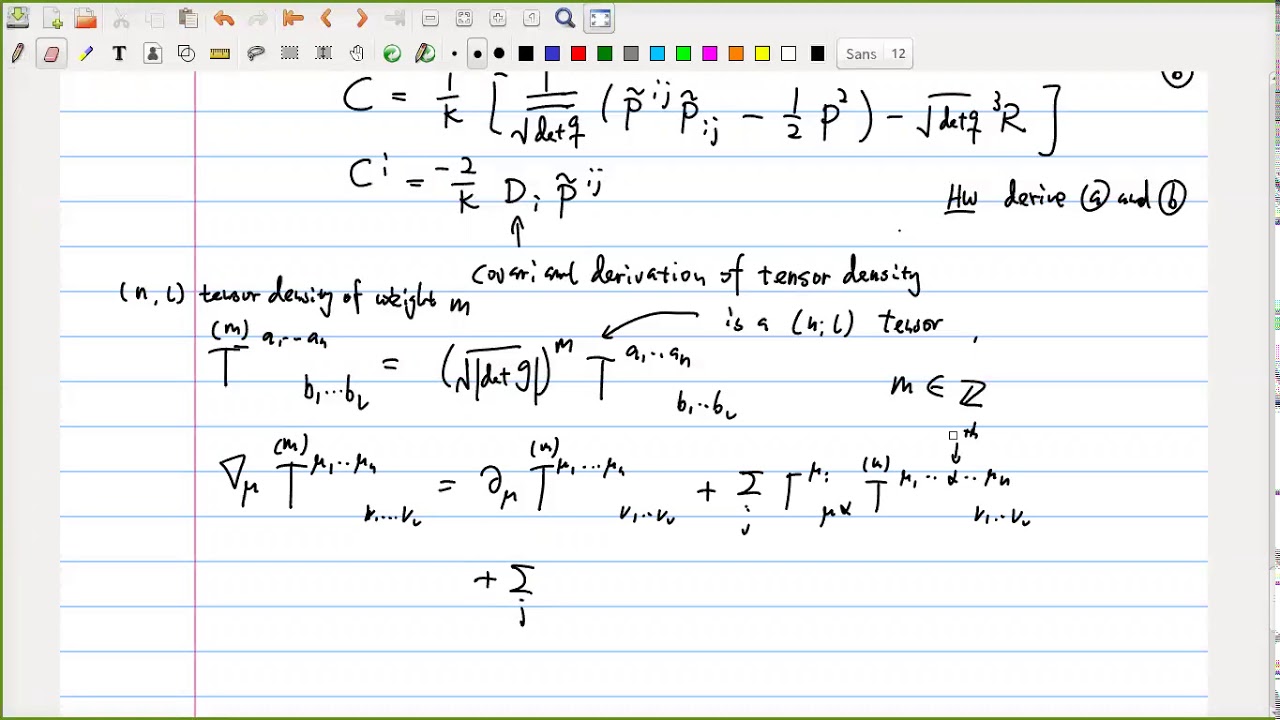 Sans 12
C = 1/k [ 1/√det q ( p̃^{ij} p̃_{ij} − 1/2 p²) − √det q ³R ]
C^i = −2/k D_i p̃^{ij}
HW derive ⓐ and ⓑ
↑
covariant derivation of tensor density
(n, l) tensor density of weight m
is a (n, l) tensor
T^{(m) a₁...aₙ}_{b₁...b_l} = (√|det g|)^m T^{a₁...aₙ}_{b₁...b_l}
m ∈ ℤ
th
∇_μ T^{(m) μ₁...μₙ}_{ν₁...ν_l} = ∂_μ T^{(m) μ₁...μₙ}_{ν₁...ν_l} + Σ_j Γ^{μ_i}_{μα} T^{(m) μ₁..α..μₙ}_{ν₁...ν_l}
+ Σ_j